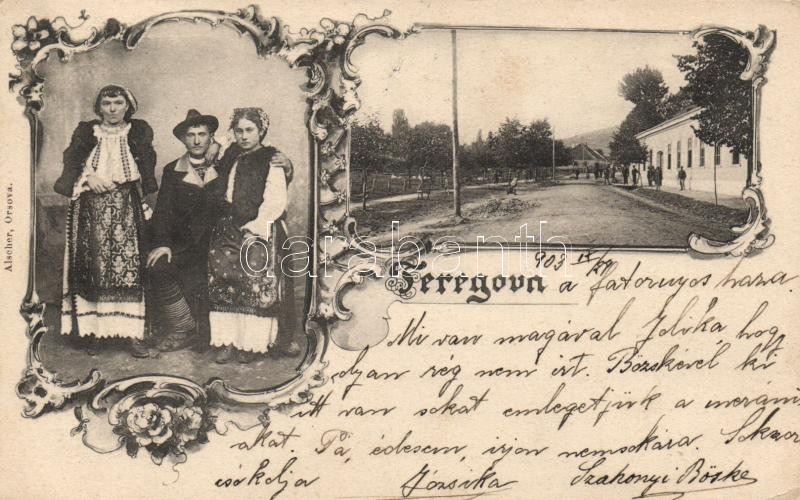 Alscher, Orsova.
darabanth
Teregova
903 IX/29
a Fatornyos haza.
Mi van magával Jolika, hog
olyan rég nem irt. Bözskevel ki
itt van sokat emlegetjük a meráni
akat. Pá, édesem, irjon nemsokára. Sokszor
csókolja Józsika Szahonyi Böske